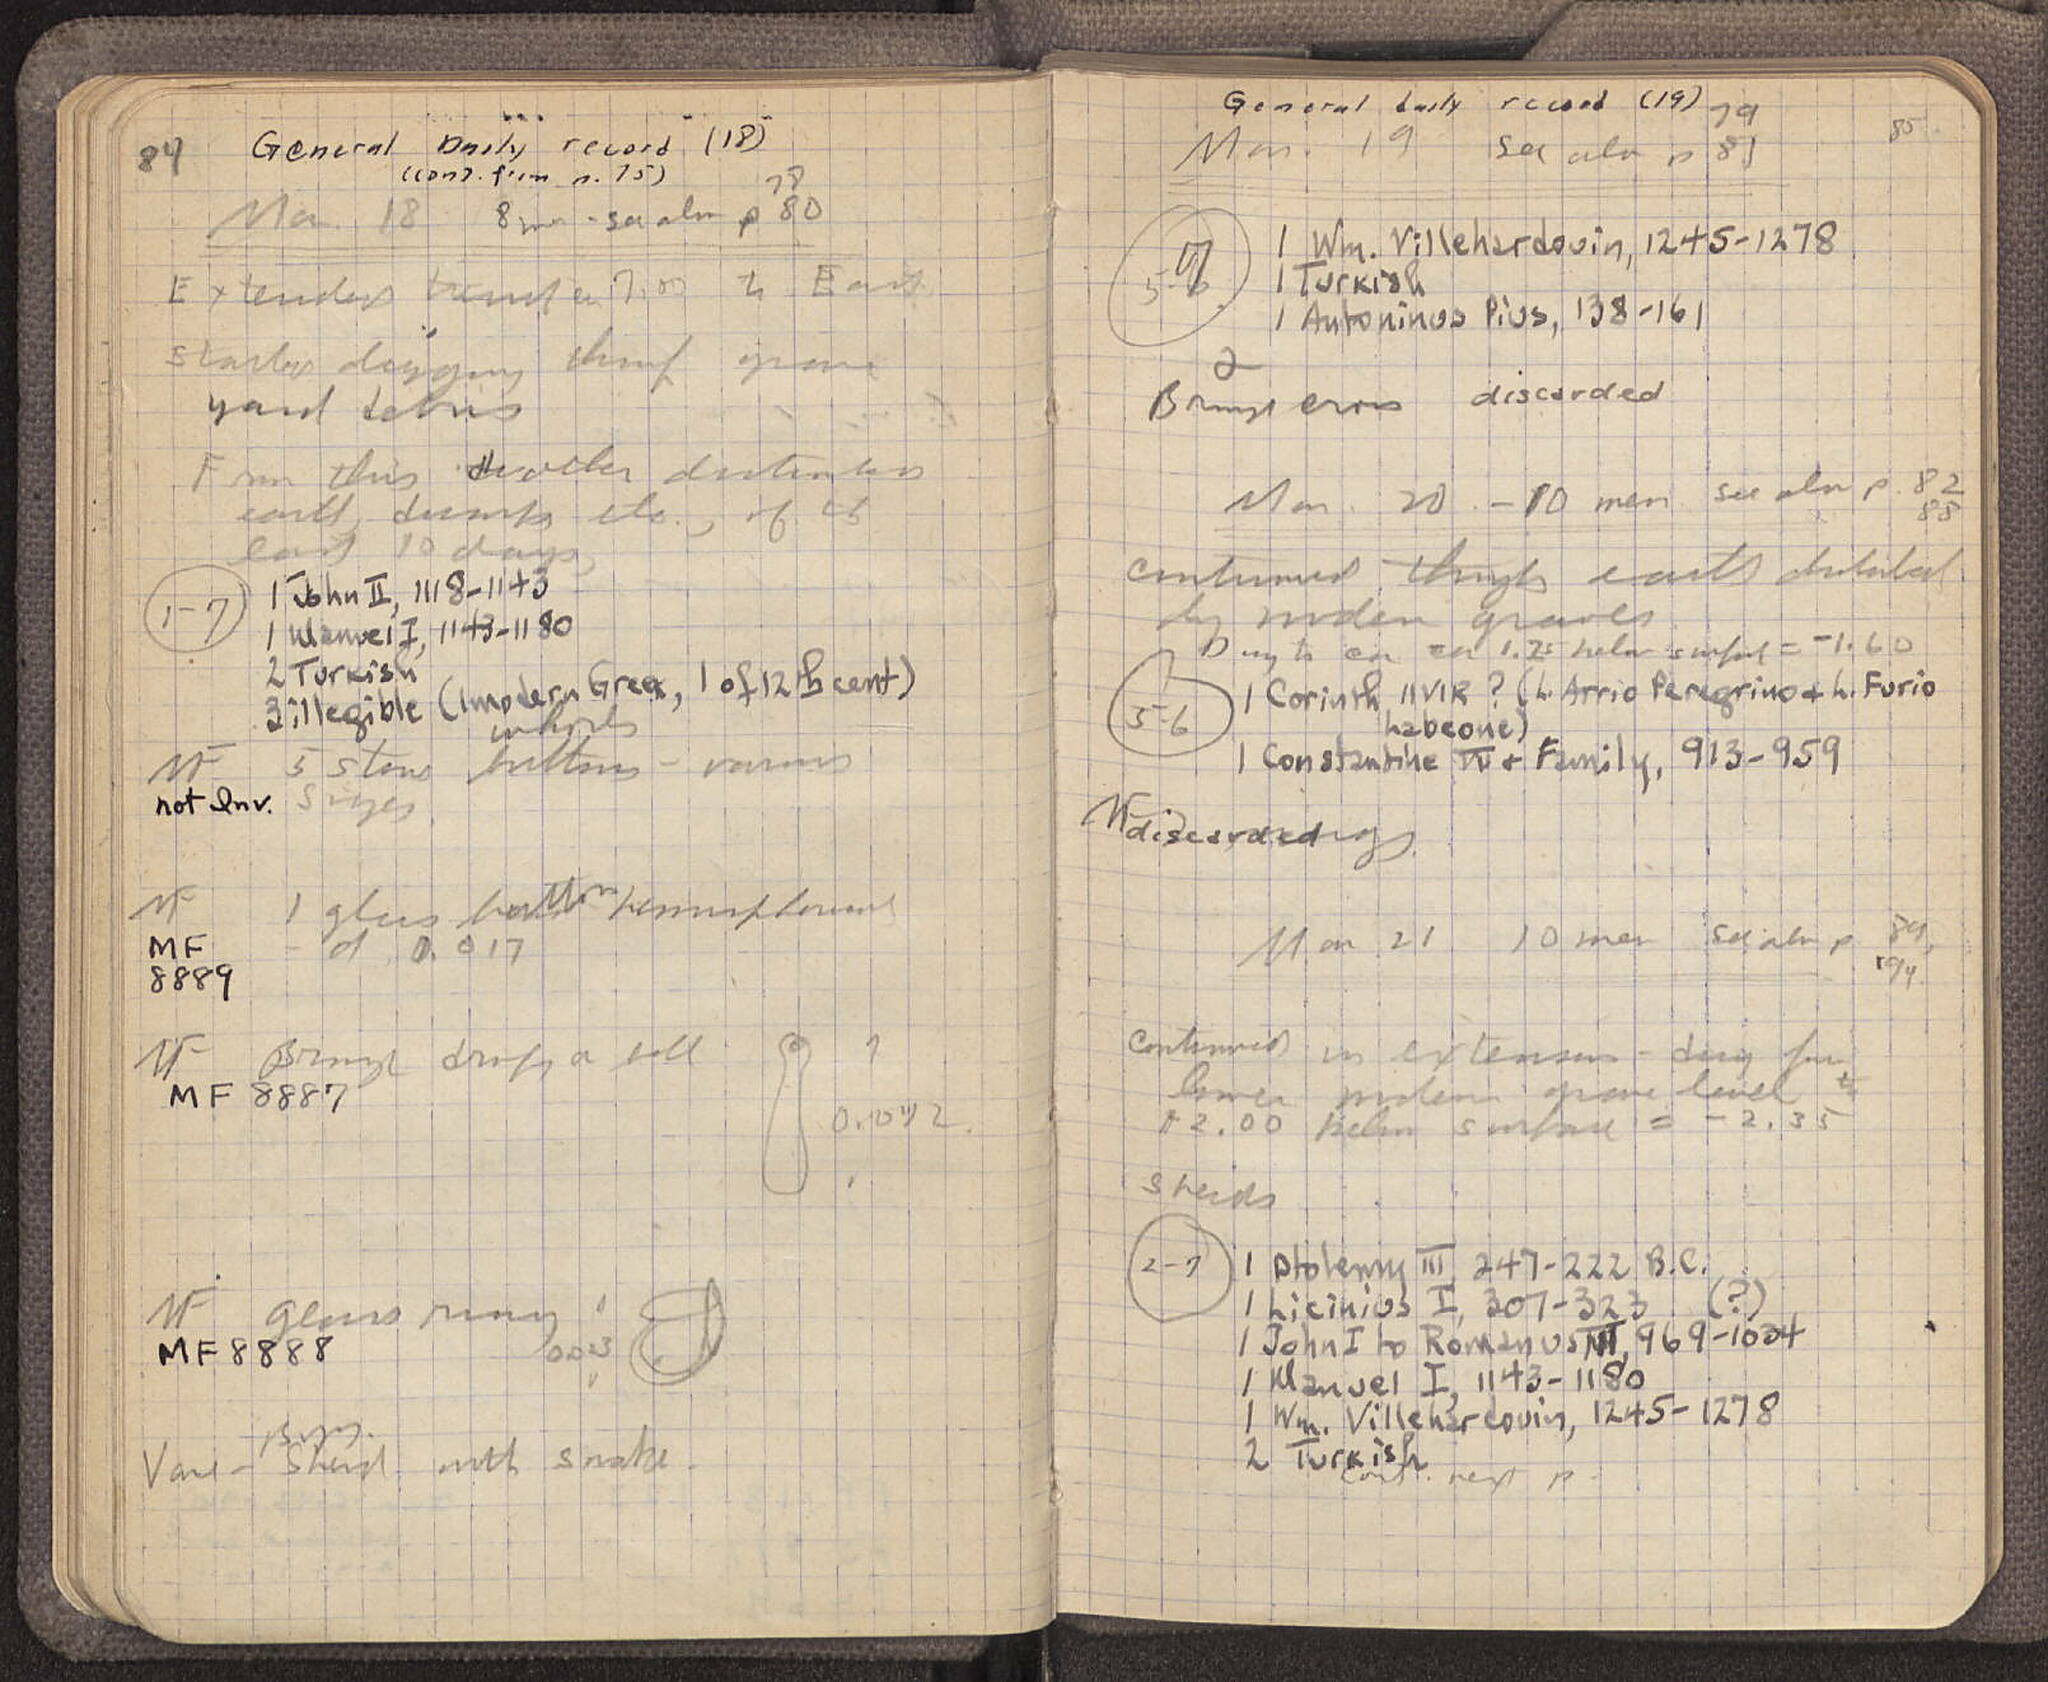 84
General Daily record (18)
(cont. from p. 75)
78
Mar. 18 8 men - see also p 80
Extended trench ca 7.00 to East
started digging through grave
yard debris
From this other
earth, dumps etc., of
last 10 days
1-7
1 John II, 1118-1143
1 Manuel I, 1143-1180
2 Turkish
3 illegible (1 modern Greek, 1 of 12th cent)
whorls
MF 5 stone buttons - various
not Inv. sizes
MF 1 glass button
MF - d. 0.017
8889
MF Bronze
MF 8887
0.1042
MF glass ring
MF 8888 0.023
Byz.
Vase - Sherd with snake
General daily record (19) 79
85
Mar. 19 See also p 81
5-6
1 Wm. Villehardouin, 1245-1278
1 Turkish
1 Antoninus Pius, 138-161
2
Bronze cross discarded
Mar. 20 - 10 men see also p. 82
88
continued through earth disturbed
by modern graves
Dug to ca 1.25 below surface = -1.60
5-6
1 Corinth, IIVIR ? (L. Arrio Peregrino & L. Furio
Labeone)
1 Constantine VII & Family, 913-959
MF
discarded
Mar 21 10 men see also p 89,
94
continued in extension - dug
lower modern grave level to
2.00 below surface = -2.35
Sherds
2-7
1 Ptolemy III 247-222 B.C.
1 Licinius I, 307-323 (?)
1 John I to Romanus III, 969-1034
1 Manuel I, 1143-1180
1 Wm. Villehardouin, 1245-1278
2 Turkish
cont. next p.